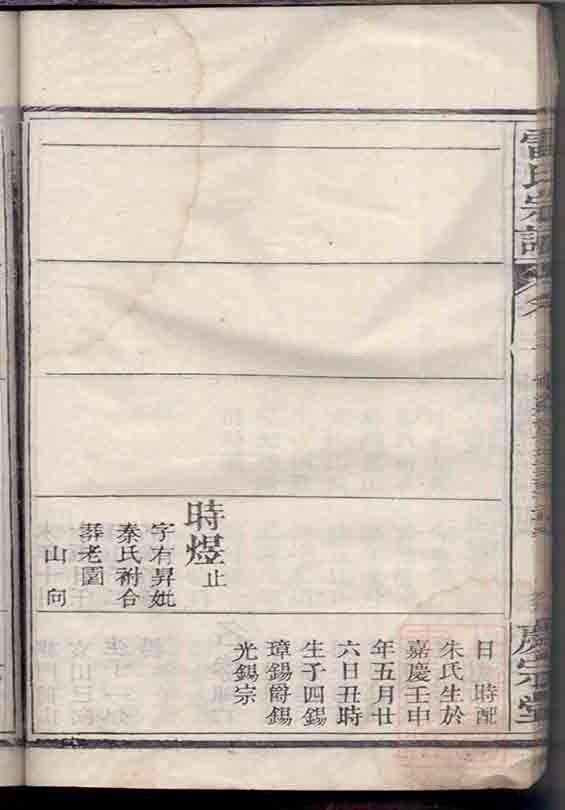 雷氏宗譜
慶宗堂
時煜止
字有昇妣
秦氏祔合
葬老園
山向
日 時配
朱氏生於
嘉慶壬申
年五月廿
六日丑時
生子四錫
璋錫爵錫
光錫宗